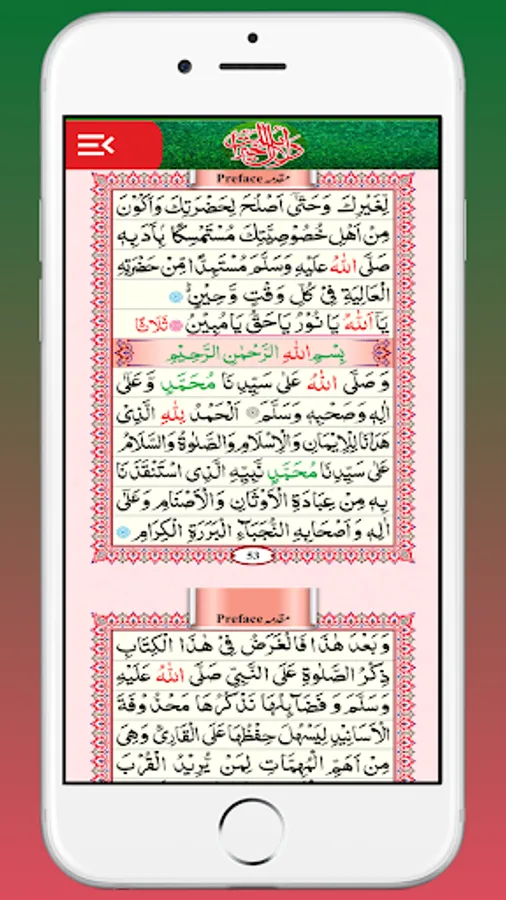 دلائل الخيرات
Preface مقدمه
لِغَيْرِكَ وَحَتّٰى اَصْلُحَ لِحَضْرَتِكَ وَاَكُوْنَ
مِنْ اَهْلِ خُصُوْصِيَّتِكَ مُسْتَمْسِكًا بِاَدَبِهٖ
صَلَّى اللهُ عَلَيْهِ وَسَلَّمَ مُسْتَمِدًّا مِّنْ حَضْرَتِهِ
الْعَالِيَةِ فِيْ كُلِّ وَقْتٍ وَّحِيْنٍ
يَآ اَللهُ يَا نُوْرُ يَاحَقُّ يَامُبِيْنُ ثَلَاثًا
بِسْمِ اللهِ الرَّحْمٰنِ الرَّحِيْمِ
وَصَلَّى اللهُ عَلٰى سَيِّدِنَا مُحَمَّدٍ وَّعَلٰى
اٰلِهٖ وَصَحْبِهٖ وَسَلَّمَ اَلْحَمْدُ لِلّٰهِ الَّذِيْ
هَدَانَا لِلْاِيْمَانِ وَالْاِسْلَامِ وَالصَّلٰوةُ وَالسَّلَامُ
عَلٰى سَيِّدِنَا مُحَمَّدٍ نَّبِيِّهِ الَّذِي اسْتَنْقَذَنَا
بِهٖ مِنْ عِبَادَةِ الْاَوْثَانِ وَالْاَصْنَامِ وَعَلٰى
اٰلِهٖ وَاَصْحَابِهِ النُّجَبَآءِ الْبَرَرَةِ الْكِرَامِ
53
Preface مقدمه
وَبَعْدَ هٰذَا فَالْغَرَضُ فِيْ هٰذَا الْكِتَابِ
ذِكْرُ الصَّلٰوةِ عَلَى النَّبِيِّ صَلَّى اللهُ عَلَيْهِ
وَسَلَّمَ وَفَضَآئِلُهَا نَذْكُرُهَا مَحْذُوْفَةَ
الْاَسَانِيْدِ لِيَسْهُلَ حِفْظُهَا عَلَى الْقَارِئِ وَهِيَ
مِنْ اَهَمِّ الْمُهِمَّاتِ لِمَنْ يُّرِيْدُ الْقُرْبَ